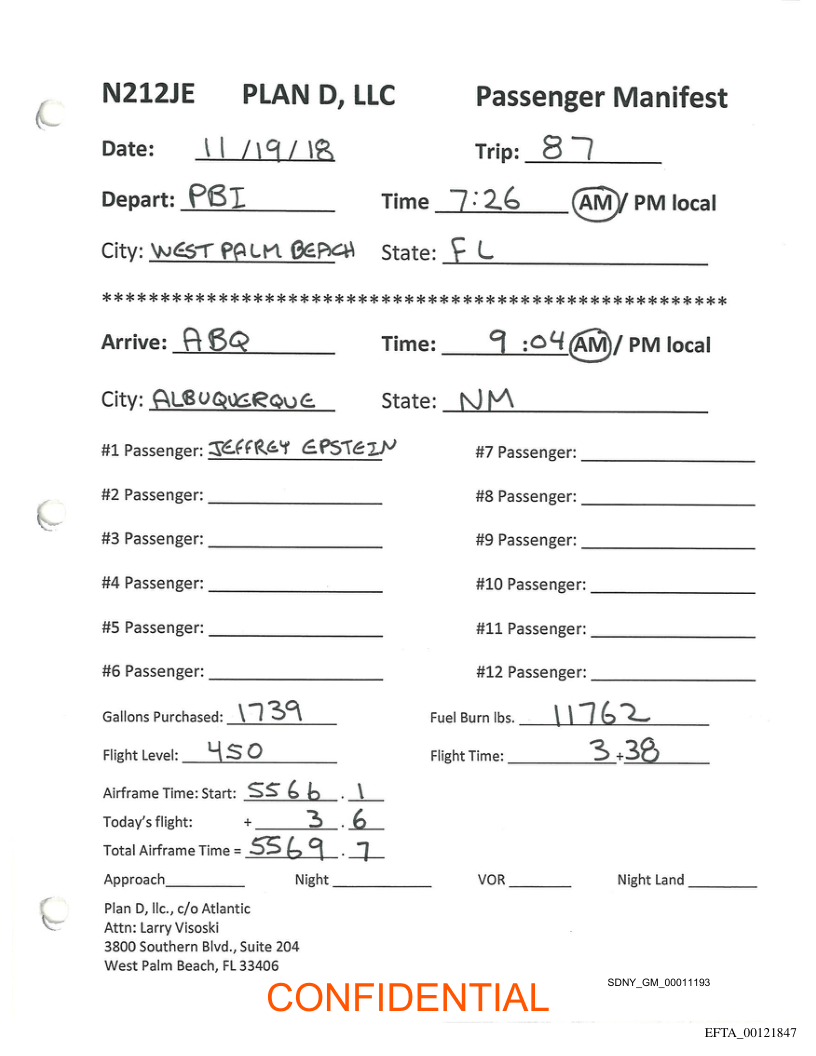 N212JE PLAN D, LLC Passenger Manifest
Date: 11/19/18 Trip: 87
Depart: PBI Time 7:26 AM / PM local
City: WEST PALM BEACH State: FL
******************************************************
Arrive: ABQ Time: 9:04 AM / PM local
City: ALBUQUERQUE State: NM
#1 Passenger: JEFFREY EPSTEIN #7 Passenger:
#2 Passenger: #8 Passenger:
#3 Passenger: #9 Passenger:
#4 Passenger: #10 Passenger:
#5 Passenger: #11 Passenger:
#6 Passenger: #12 Passenger:
Gallons Purchased: 1739 Fuel Burn lbs. 11762
Flight Level: 450 Flight Time: 3+38
Airframe Time: Start: 5566.1
Today's flight: + 3.6
Total Airframe Time = 5569.7
Approach Night VOR Night Land
Plan D, llc., c/o Atlantic
Attn: Larry Visoski
3800 Southern Blvd., Suite 204
West Palm Beach, FL 33406
SDNY_GM_00011193
CONFIDENTIAL
EFTA_00121847